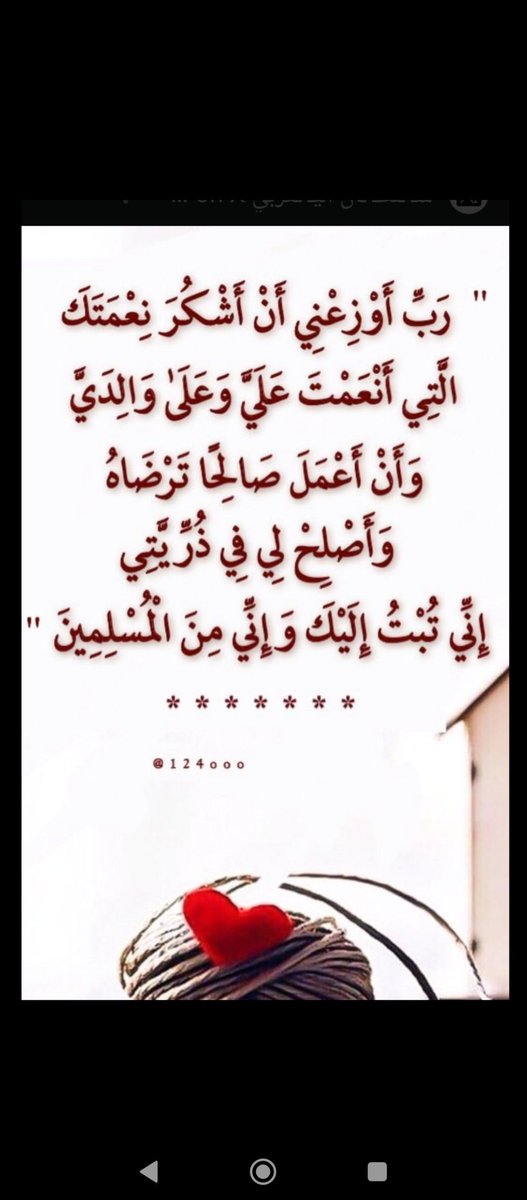 " رَبِّ أَوْزِعْنِي أَنْ أَشْكُرَ نِعْمَتَكَ
الَّتِي أَنْعَمْتَ عَلَيَّ وَعَلَىٰ وَالِدَيَّ
وَأَنْ أَعْمَلَ صَالِحًا تَرْضَاهُ
وَأَصْلِحْ لِي فِي ذُرِّيَّتِي
إِنِّي تُبْتُ إِلَيْكَ وَإِنِّي مِنَ الْمُسْلِمِينَ "
* * * * * * *
@124ooo